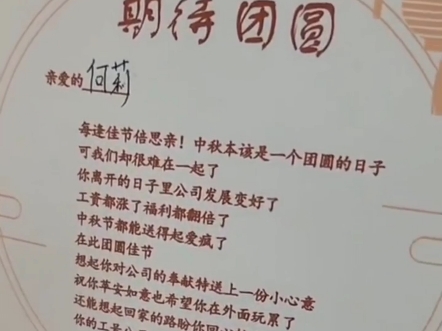 期待团圆
亲爱的 何莉
每逢佳节倍思亲！中秋本该是一个团圆的日子
可我们却很难在一起了
你离开的日子里公司发展变好了
工资都涨了福利都翻倍了
中秋节都能送得起爱疯了
在此团圆佳节
想起你对公司的奉献特送上一份小心意
祝你苹安如意也希望你在外面玩累了
还能想起回家的路盼你回
你的工号